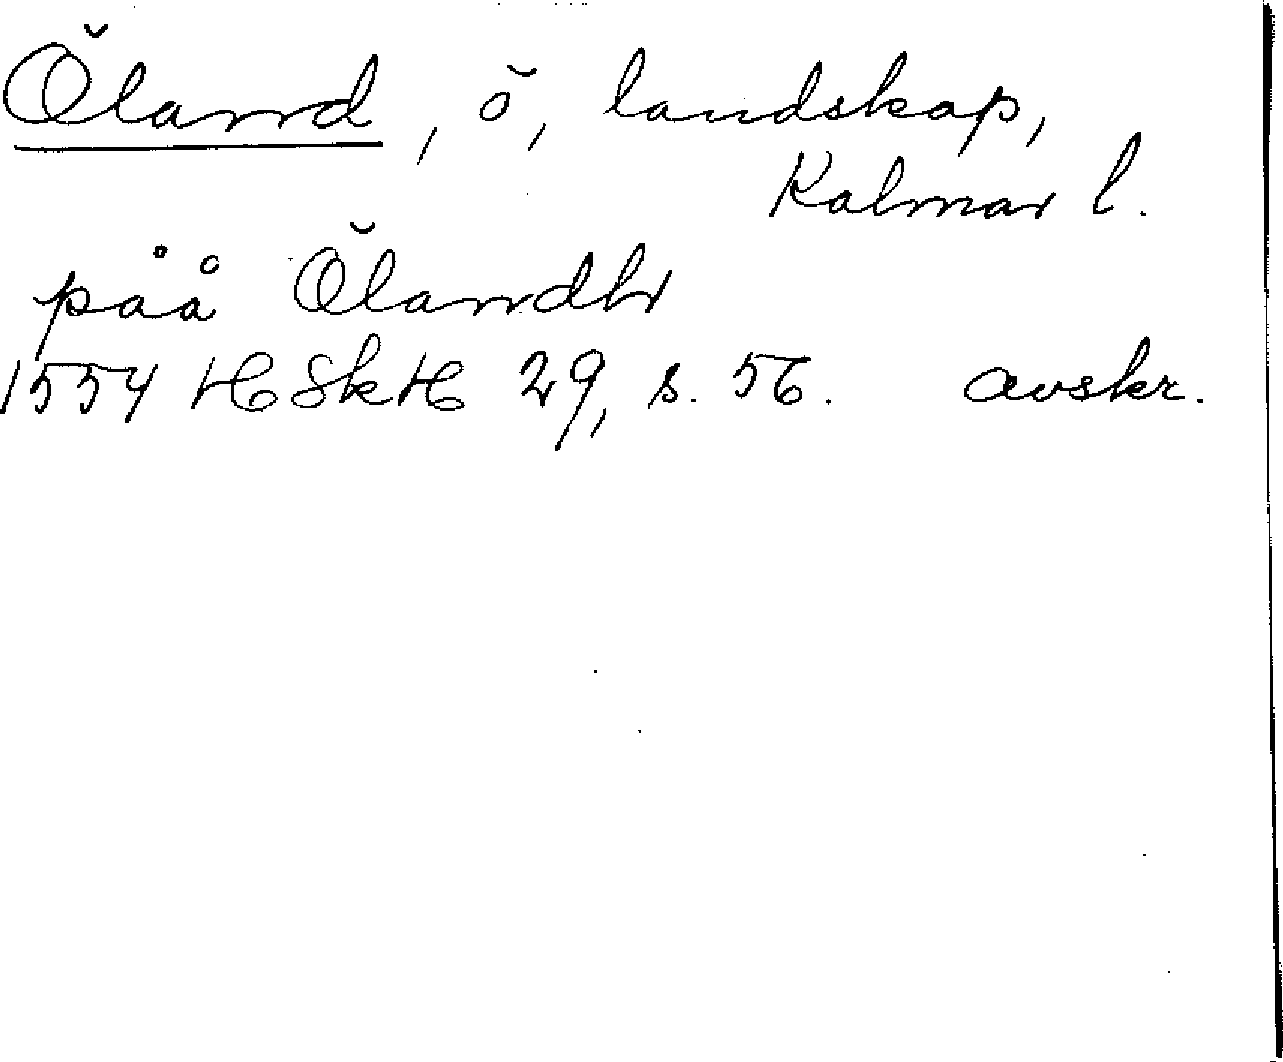 Öland, ö, landskap,
Kalmar l.
påå Ölandh
1554 HSkH 29, s. 56. avskr.